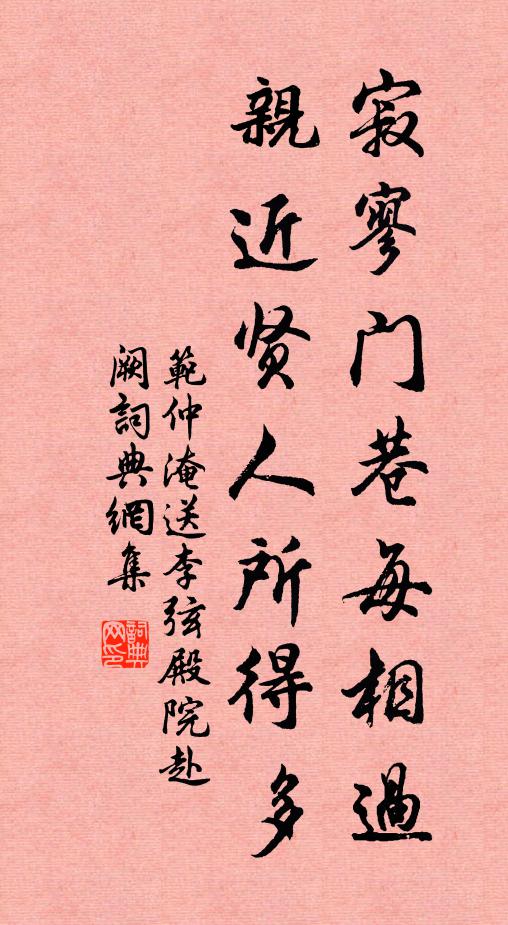 寂寥门巷每相過
親近贤人所得多
範仲淹送李弦殿院赴
阙詞典網集
詞典網印